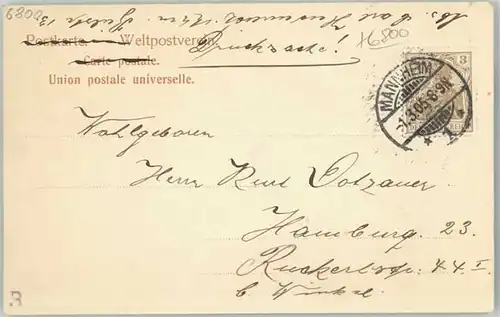 6800
Postkarte. Weltpostverein
Drucksache!
76800
Carte postale.
Union postale universelle.
3
MANNHEIM
1.3.05. 8-9N.
* 1 *
REICH
Wohlgeboren
Herrn Kurt Dotzauer
Hamburg 23.
Ruckertstr. 44 I
b. Winkel.
B